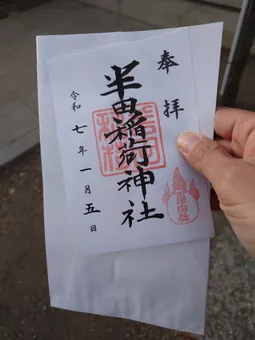 奉拝
半田稲荷神社
令和七年一月五日